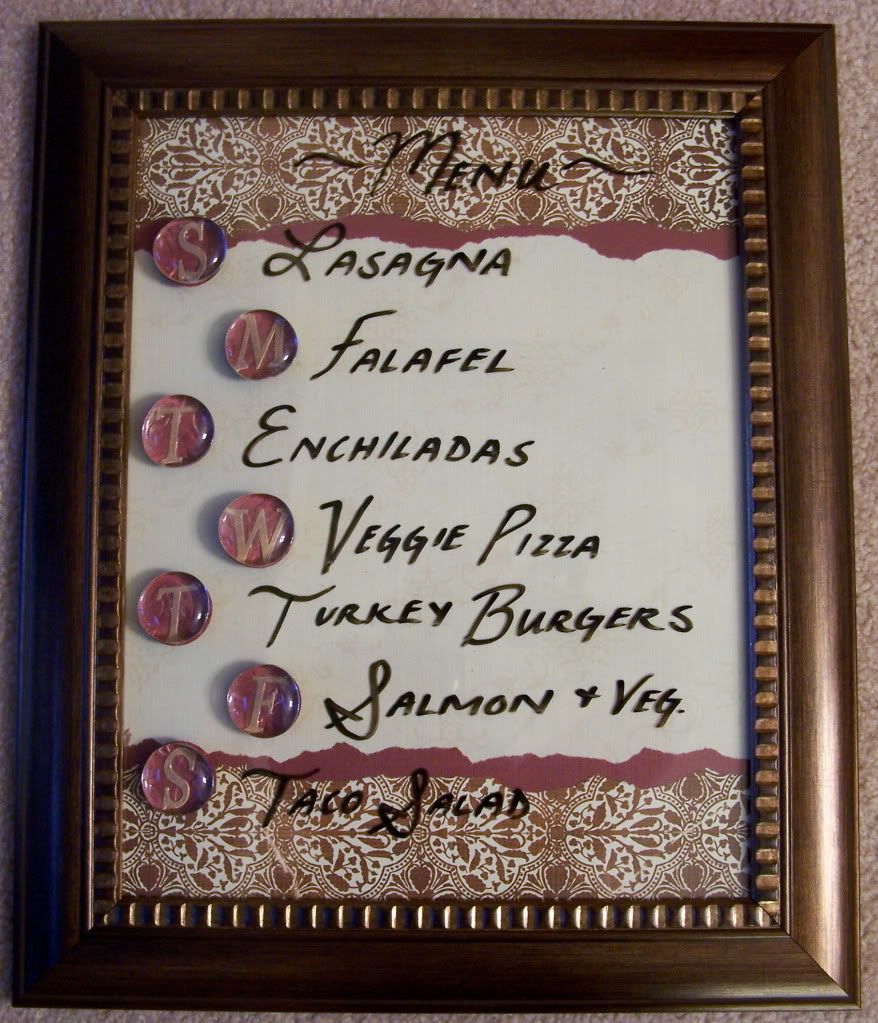 ~Menu~
S Lasagna
M Falafel
T Enchiladas
W Veggie Pizza
T Turkey Burgers
F Salmon + Veg.
S Taco Salad